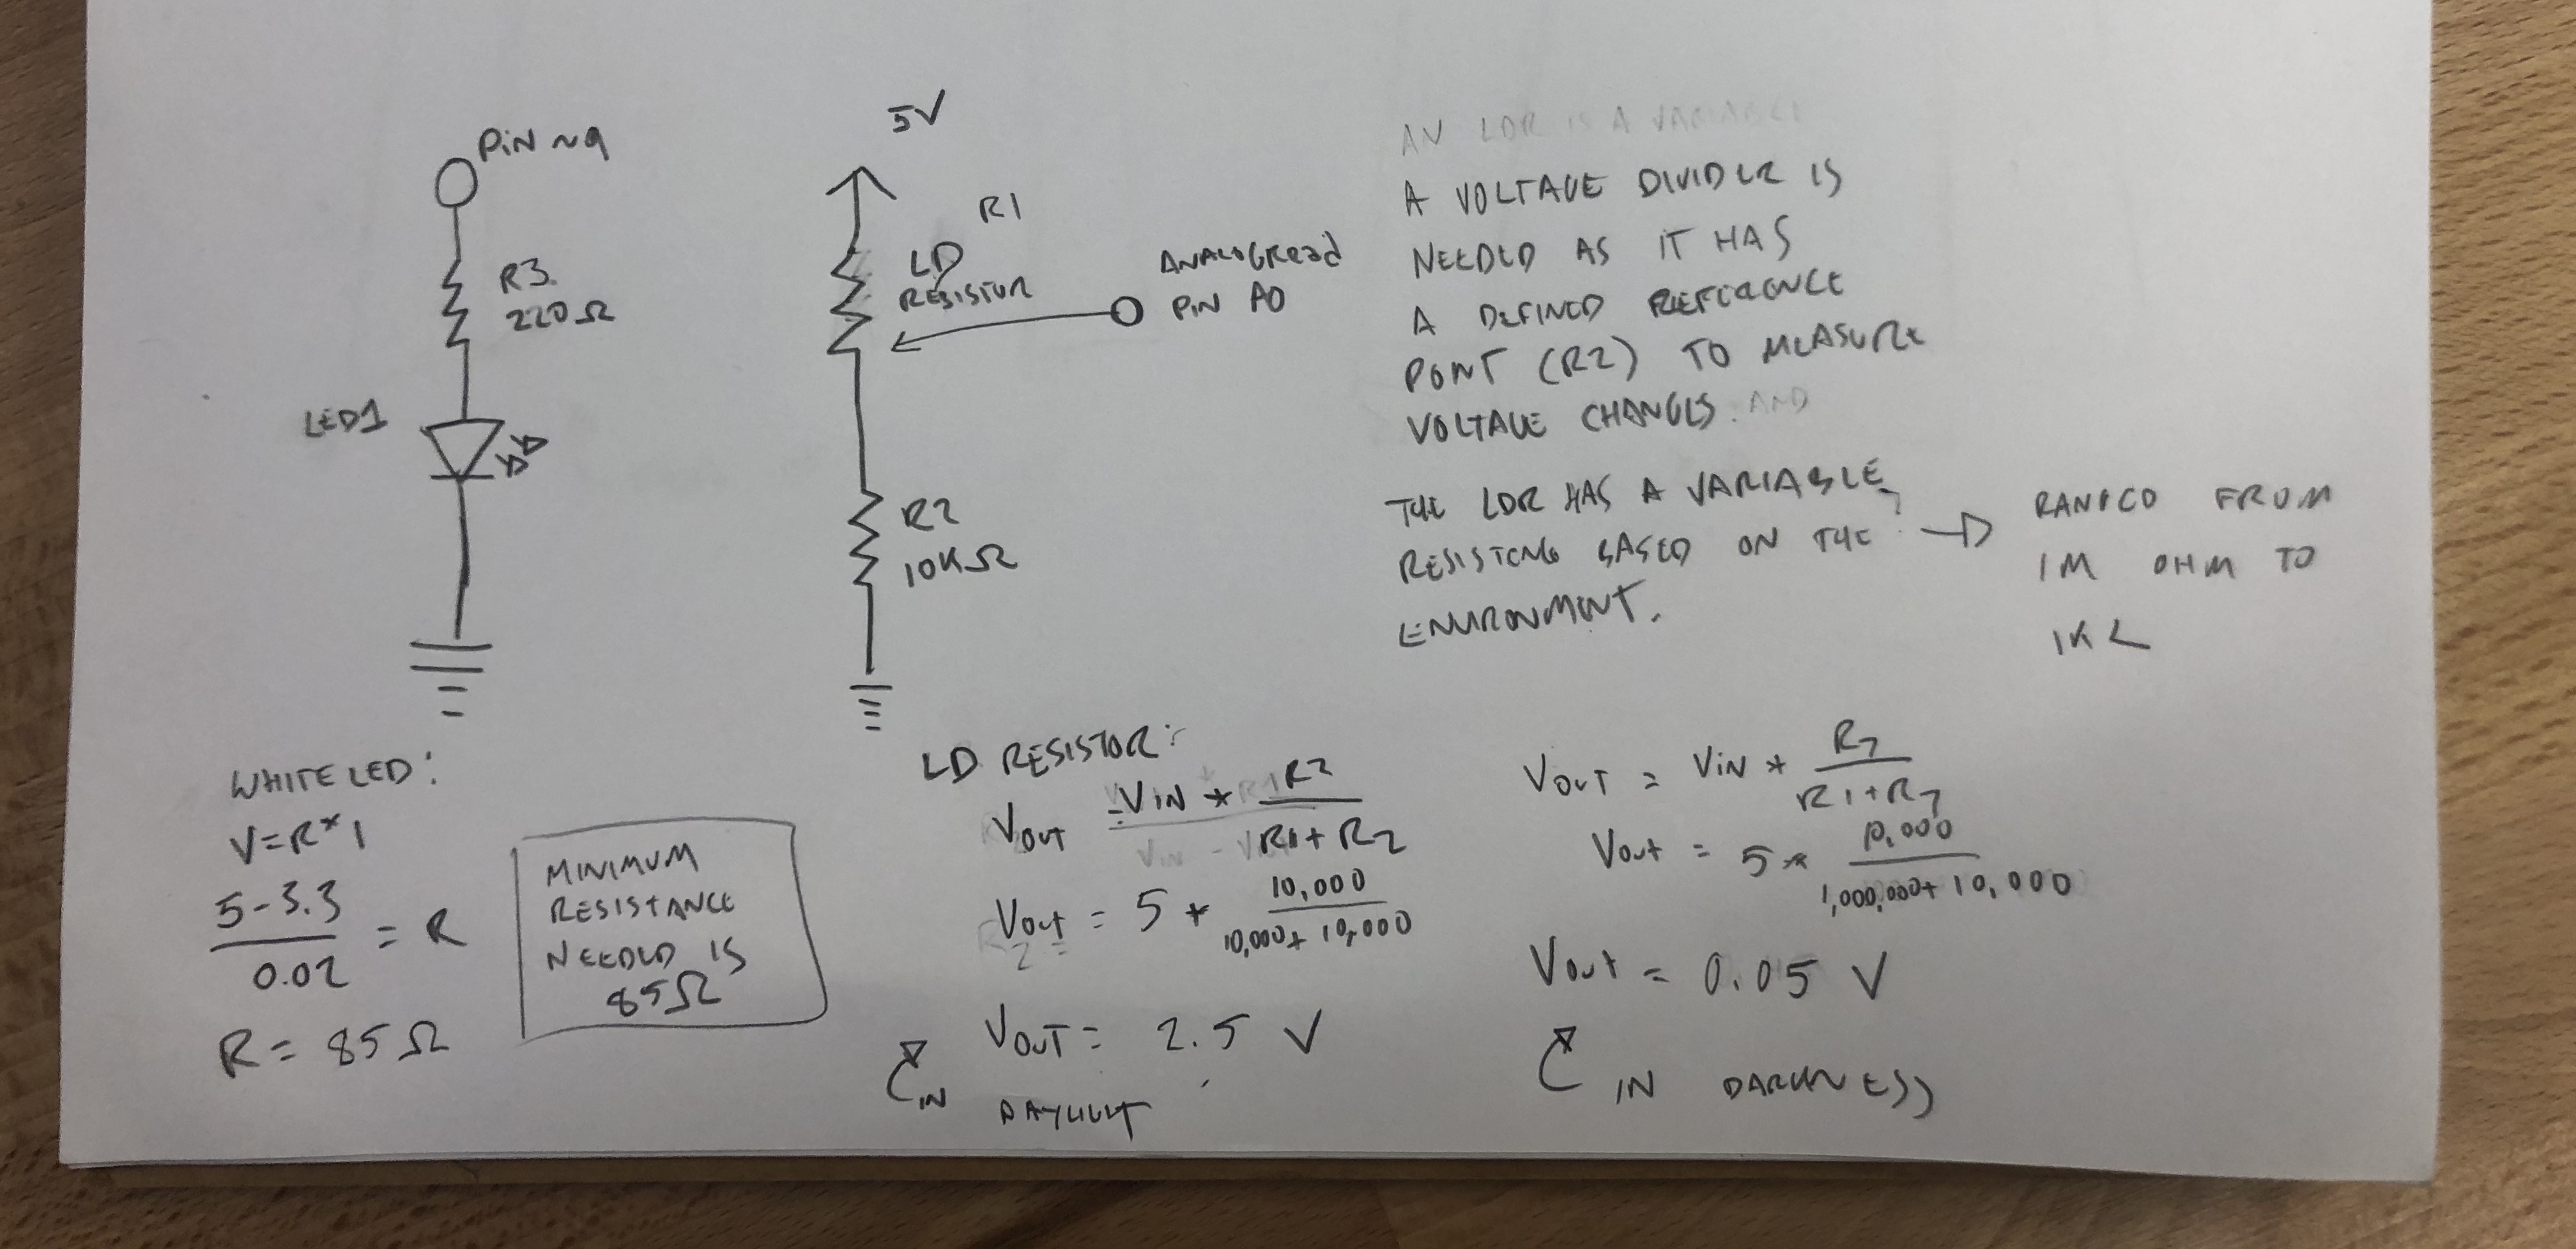 PIN ~9
R3
220Ω
LED1
5V
R1
LD
RESISTOR
ANALOGRead
PIN A0
R2
10KΩ
AN LDR IS A VARIABLE
A VOLTAGE DIVIDER IS
NEEDED AS IT HAS
A DEFINED REFERENCE
POINT (R2) TO MEASURE
VOLTAGE CHANGES. AND
THE LDR HAS A VARIABLE
BASED ON THE
ENVIRONMENT.
RANGED FROM
1M OHM TO
1K
WHITE LED:
V=R*I
5-3.3
0.02
= R
R = 85Ω
MINIMUM
RESISTANCE
NEEDED IS
85Ω
LD RESISTOR:
VOUT = VIN * R2
R1 + R2
VOUT = 5 * 10,000
10,000 + 10,000
VOUT = 2.5 V
IN
DAYLIGHT
VOUT = VIN * R2
R1+R2
VOUT = 5 * 10,000
1,000,000 + 10,000
VOUT = 0.05 V
IN DARKNESS